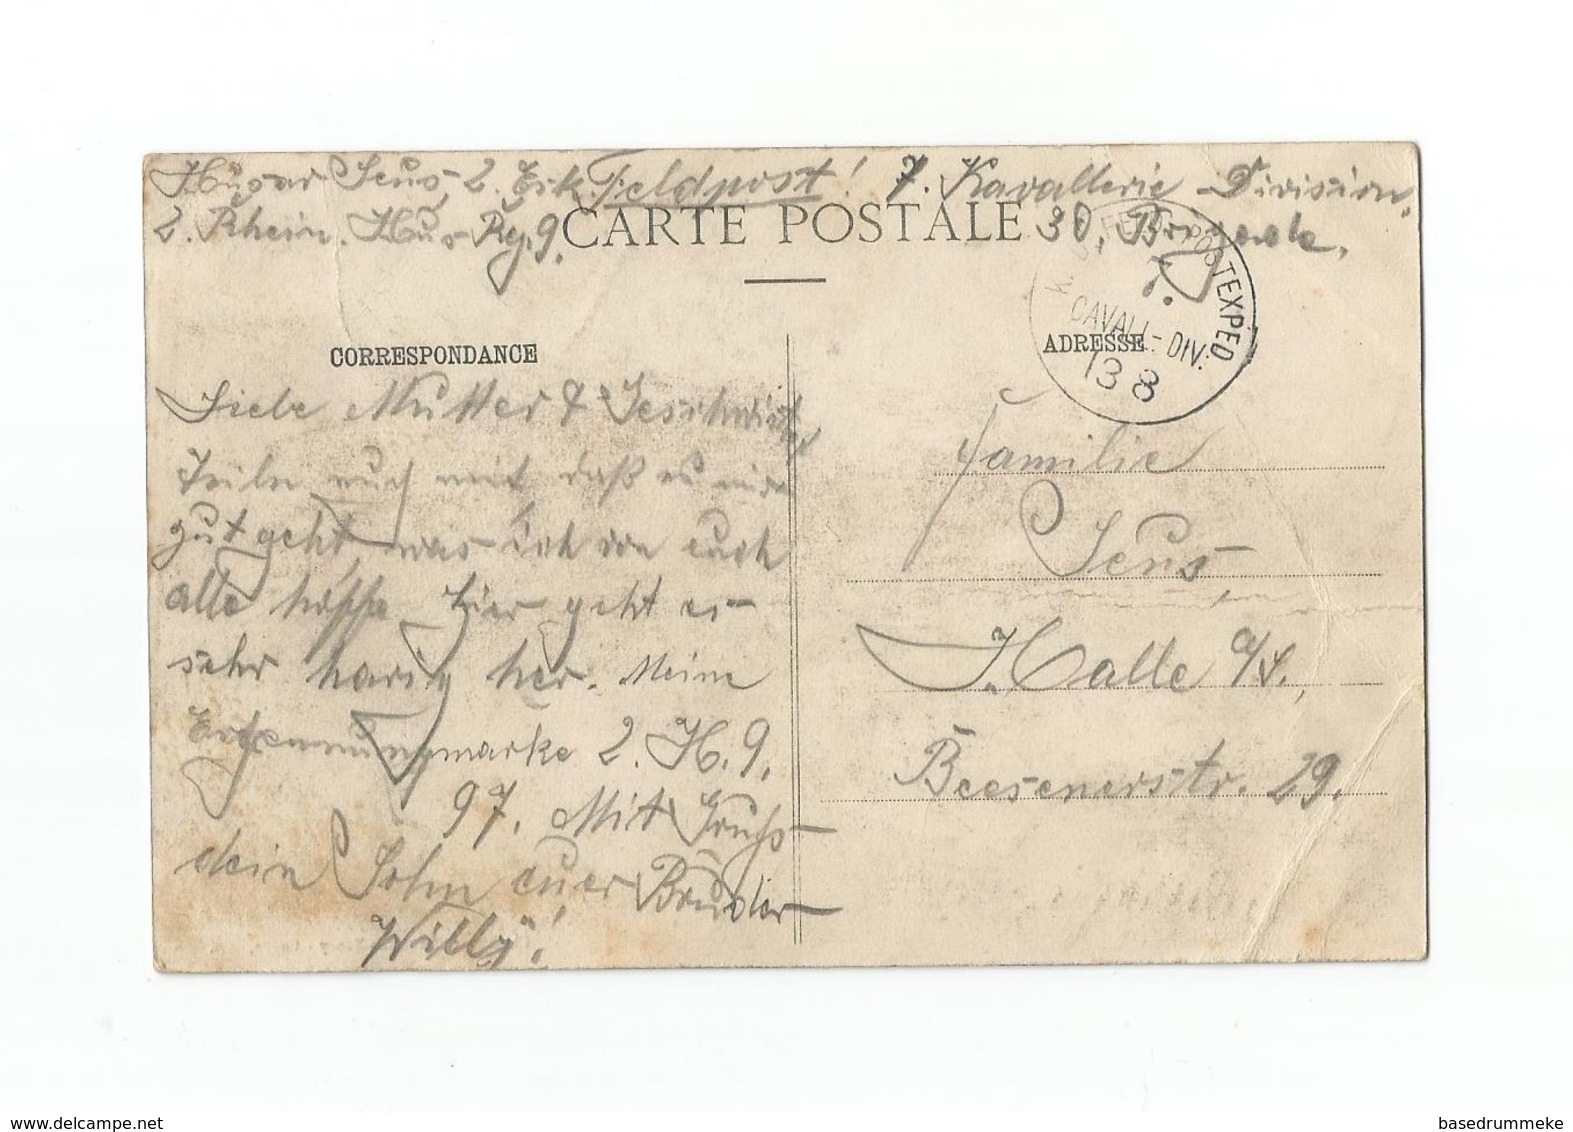 Husar Seus, 2. Esk. Feldpost! 7. Kavallerie-Division,
2. Rhein. Hus. Reg. 9. 30. Brigade.
CARTE POSTALE
K. D. FELDPOSTEXPED
7.
CAVALL.-DIV.
13 8
CORRESPONDANCE
ADRESSE
Liebe Mutter & Geschwister
Teile euch mit, daß es mir
gut geht, was ich von euch
alle hoffe. Hier geht es
sehr harig her. Meine
Erkennungsmarke 2. H. 9.
97. Mit Gruß
dein Sohn euer Bruder
Willy!
Familie
Seus,
Halle a/S.,
Beesenerstr. 29.
www.delcampe.net
basedrummeke